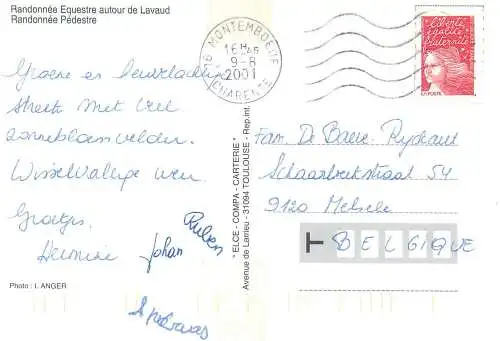 Randonnée Equestre autour de Lavaud
Randonnée Pédestre
Groene en heuvelachtige
streek met veel
zonnebloemvelden.
Wisselvallige weer.
Groetjes.
Hermine Johan Ruben
Photo : I. ANGER
"ELCE - COMPA - CARTERIE"
Avenue de Larrieu - 31094 TOULOUSE - Rep. int.
16 MONTEMBOEUF
16 H
9-8
2001
CHARENTE
liberté
égalité
fraternité
LA POSTE
Fam. De Baere - Rydeaut
Schaarbeekstraat 54
9120 Melsele
BELGIQUE